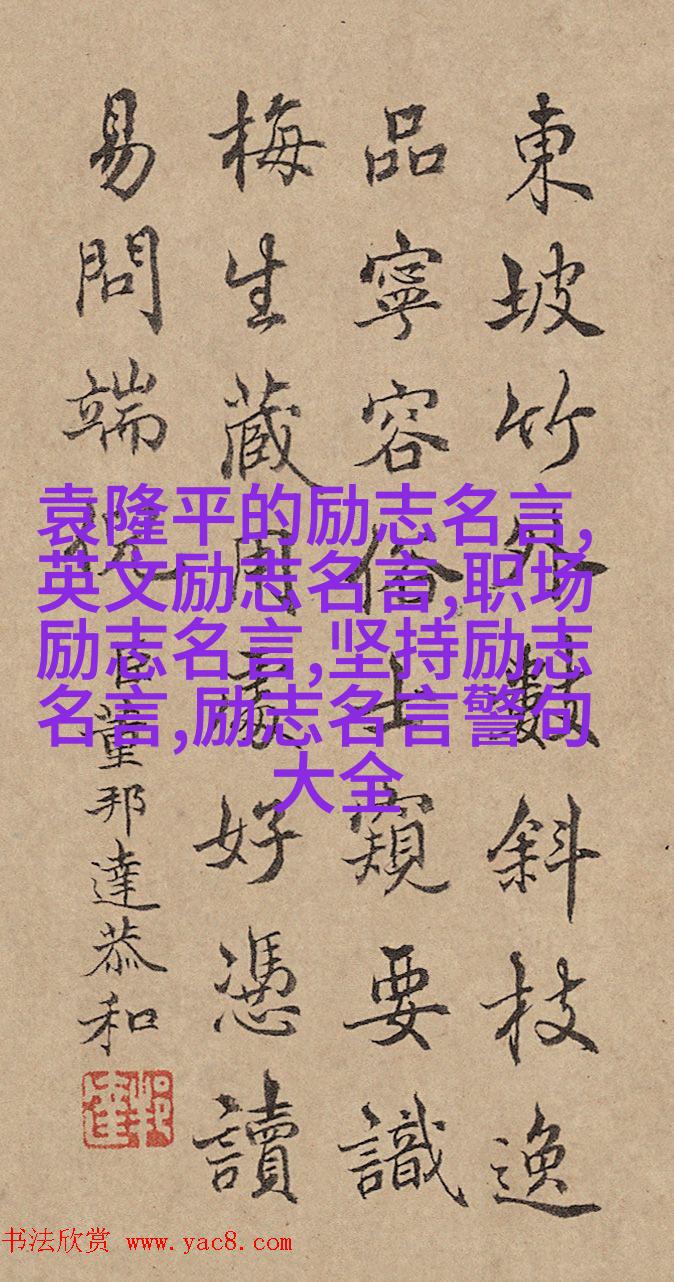 東坡竹外數斜枝逸
品寧容俗士窺要識
梅生藏用處好憑讀
易問端倪
臣董邦達恭和
袁隆平的励志名言,
英文励志名言,职场
励志名言,坚持励志
名言,励志名言警句
大全
书法欣赏 www.yac8.com